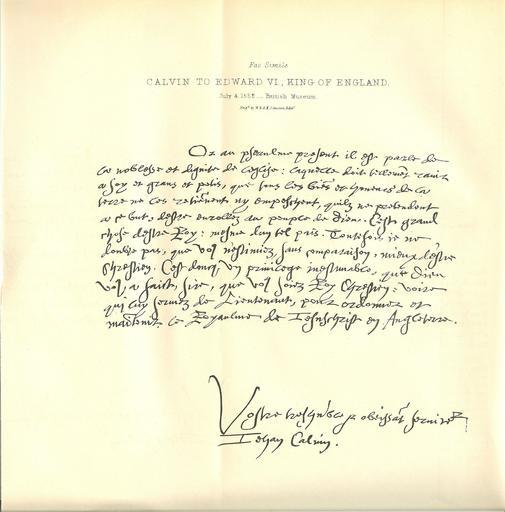 Fac Simile
CALVIN TO EDWARD VI, KING OF ENGLAND.
July 4 1552 _ British Museum.
Or au pseaulme present il est parle de
la noblesse et dignite de leglise: laquelle doit tellement ravir
a soy et grans et petis, que tous les biẽs et honneurs de la
terre ne les retiẽnent ny empeschent, quilz ne pretendent
a ce but, destre enrollez au peuple de Dieu. Cest grand
chose destre Roy: mesme dung tel païs. Toutefois ie ne
doubte pas, que vous nestimiez sans comparaison, mieux destre
Chrestien. Cest doncq un privilege inestimable, que Dieu
vous a faict, sire, que vous soiez Roy Chrestien: voire
qui luy servez de Lieutenant, pour ordonner et
maintenir le Royaulme de Iesuschrist en Angleterre.
Vostre treshũble et obeissãt serviteur
Iehan Calvin.